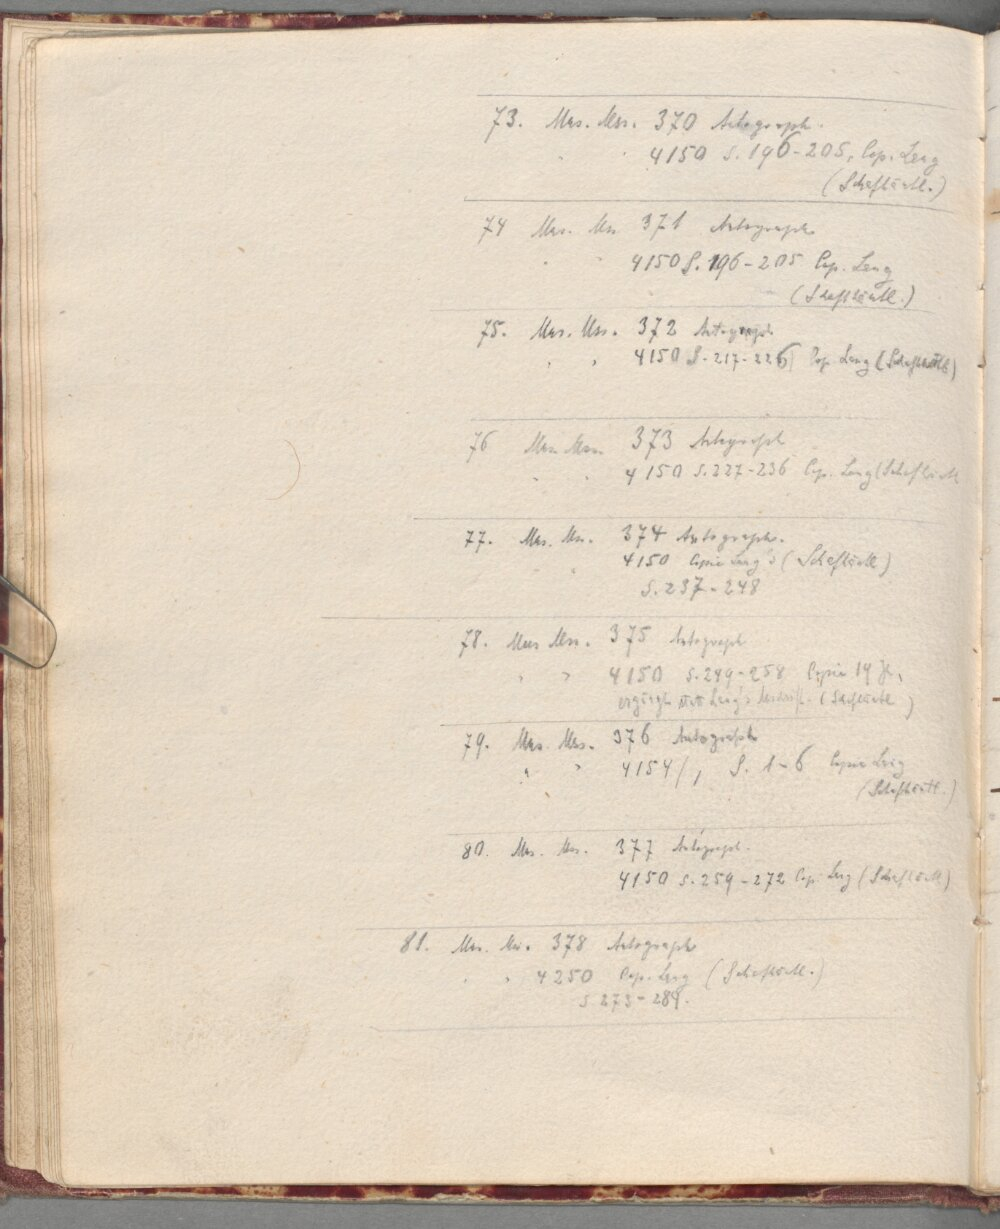 73. Mus. Mss. 370 Autograph.
" " 4150 S. 196-205, Cop. Lang
(Schafhäutl.)
74 Mus. Ms. 371 Autograph
" " 4150 S. 196-205 Cop. Lang
(Schafhäutl.)
75. Mus. Mss. 372 Autograph.
" " 4150 S. 217-226 Cop. Lang (Schafhäutl)
76 Mus. Mss. 373 Autograph
" " 4150 S. 227-236 Cop. Lang (Schafhäutl
77. Mus. Ms. 374 Autograph.
" 4150 Copie Lang's (Schafhäutl)
S. 237-248
78. Mus Mss. 375 Autograph
" " 4150 S. 249-258 Copie 19 Jh.,
Lang's (Schafhäutl)
79. Mus. Mss. 376 Autograph
" " 4154/1 S. 1-6 Copie Lang
(Schafhäutl.)
80. Mus. Ms. 377 Autograph.
4150 S. 259-272 Cop. Lang (Schafhäutl)
81. Mus. Ms. 378 Autograph
" " 4250 Cop. Lang (Schafhäutl.)
S. 273-289.